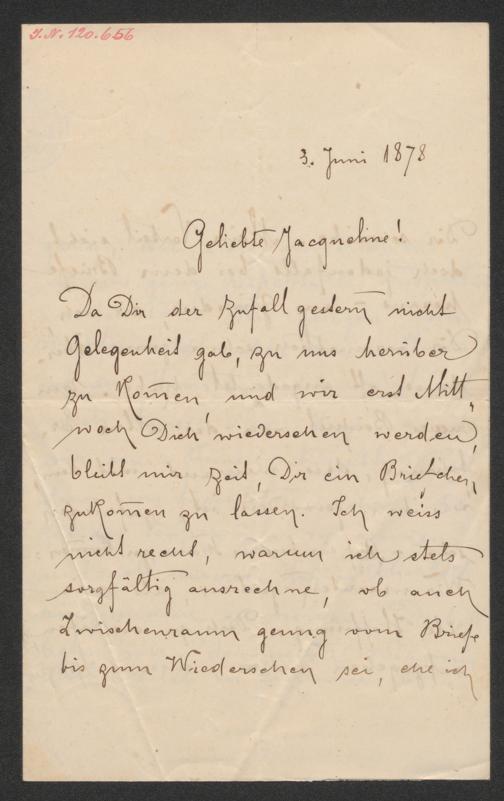 I.N. 120.656
3. Juni 1878
Geliebte Jacqueline!
Da Dir der Zufall gestern nicht
Gelegenheit gab, zu uns herüber
zu kom̄en, und wir erst Mitt„
woch Dich wiedersehen werden,
bleibt mir Zeit, Dir ein Briefchen
zukom̄en zu lassen. Ich weiss
nicht recht, warum ich stets
sorgfältig ausrechne, ob auch
Zwischenraum genug vom Briefe
bis zum Wiedersehen sei, ehe ich